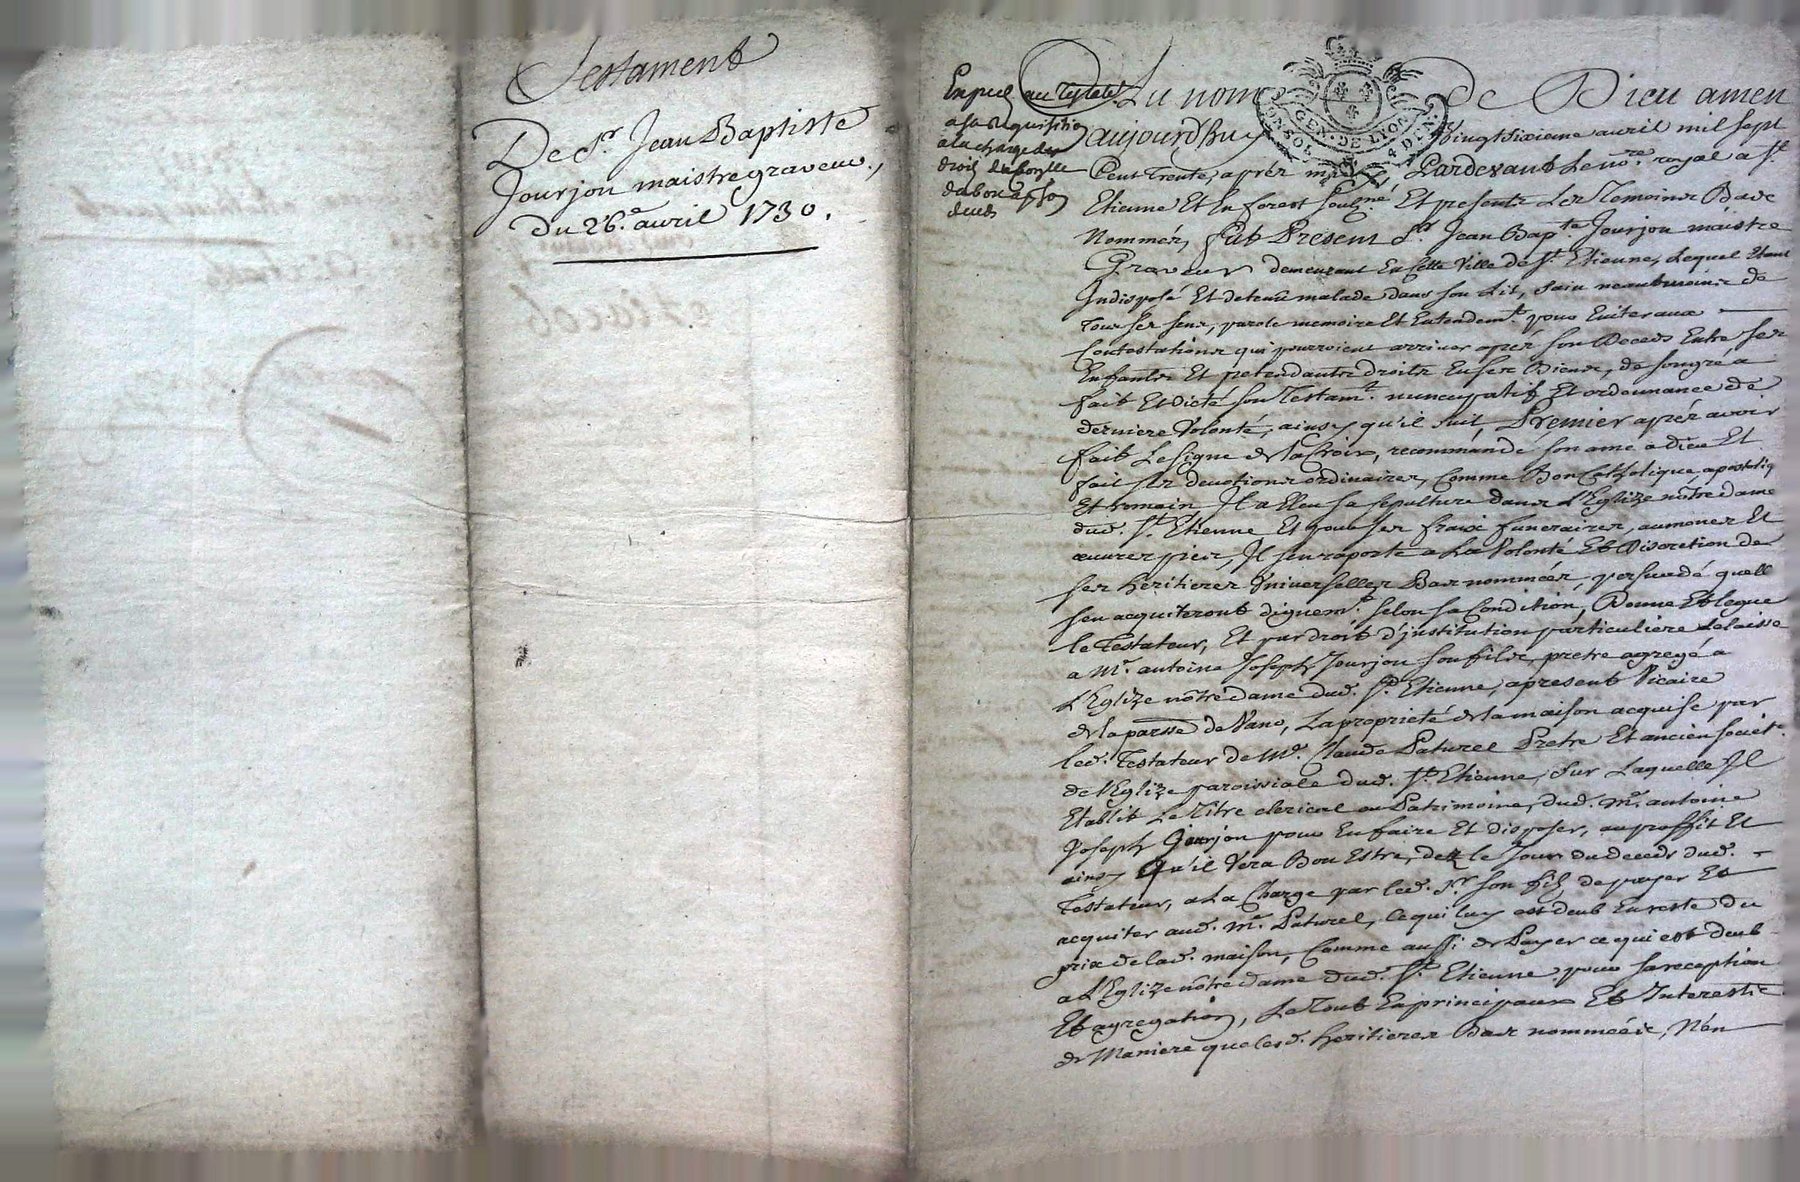 Testament
De Sr. Jean Baptiste
Jourjon maistre graveur,
Du 26e. avril 1730.
Expedié au Testatr.
a sa Requisition
a la charge des
droits
deubs
GEN. DE LYON
4 DEN.
Au nom de Dieu amen
aujourdhuy vingt sixieme avril mil sept
Cent trente, aprés midy Pardevant Le nore. royal a St.
Etienne Et En forest sousné. Et presents Les Temoins Bas
Nommés, fut Present Sr. Jean Bapte. Jourjon maistre
Graveur demeurant En Cette Ville de St. Etienne, Lequel Etant
Indisposé Et detenu malade dans son Lit, sain neantmoins de
Tous ses sens, parole memoire Et Entendemt. pour Eviter aux
Contestations qui pourroient arriver aprés son Deceds Entre ses
Enfants Et pretendants droits En ses Biens, de son gré a
fait Et Dicté son Testamt. nuncupatif Et ordonnance de
derniere Volonté, ainsy qu'il suit, Premier aprés avoir
fait Le signe de La Croix, recommandé son ame a Dieu Et
fait ses devotions ordinaires, Comme Bon Catholique apostoliq
Et Romain Il a Eleu sa sepulture dans L'Eglize nôtre dame
dud. St. Etienne Et pour ses fraix funeraires, aumones Et
œuvres pies, Il sen raporte a La Volonté Et Discretion de
ses heritieres Universelles Bas nommées, persuadé quell
sen acquiteront dignemt. selon sa Condition, Donne Et legue
le Testateur, Et par droit d'institution particuliere delaisse
a Mr. antoine Joseph Jourjon son fils, pretre agregé a
L'Eglize nôtre dame dud. St. Etienne, a present Vicaire
de la parsse de Vano, La proprieté de la maison acquise par
led. Testateur de Mr. Claude Paturel Pretre Et ancien societ.
de l'Eglize paroissiale dud. St. Etienne, sur Laquelle Il
Etablit Le Titre clerical ou Patrimoine, dud. Mr. antoine
Joseph Jourjon pour En faire Et disposer, au proffit Et
ainsy Qu'il Vera Bon Estre, dez le Jour du deceds dud.
Testateur, a La Charge par led. Sr. son fils de payer Et
acquiter aud. Mr. Paturel, ce qui luy est deub En reste du
prix de lad. maison, Comme aussi de Payer ce qui est deub
a L'Eglize nôtre dame dud. St. Etienne pour sa reception
Et agregation, Le Tout En principaux Et Interestz
de Maniere que lesd. heritieres Bas nommées, N'en